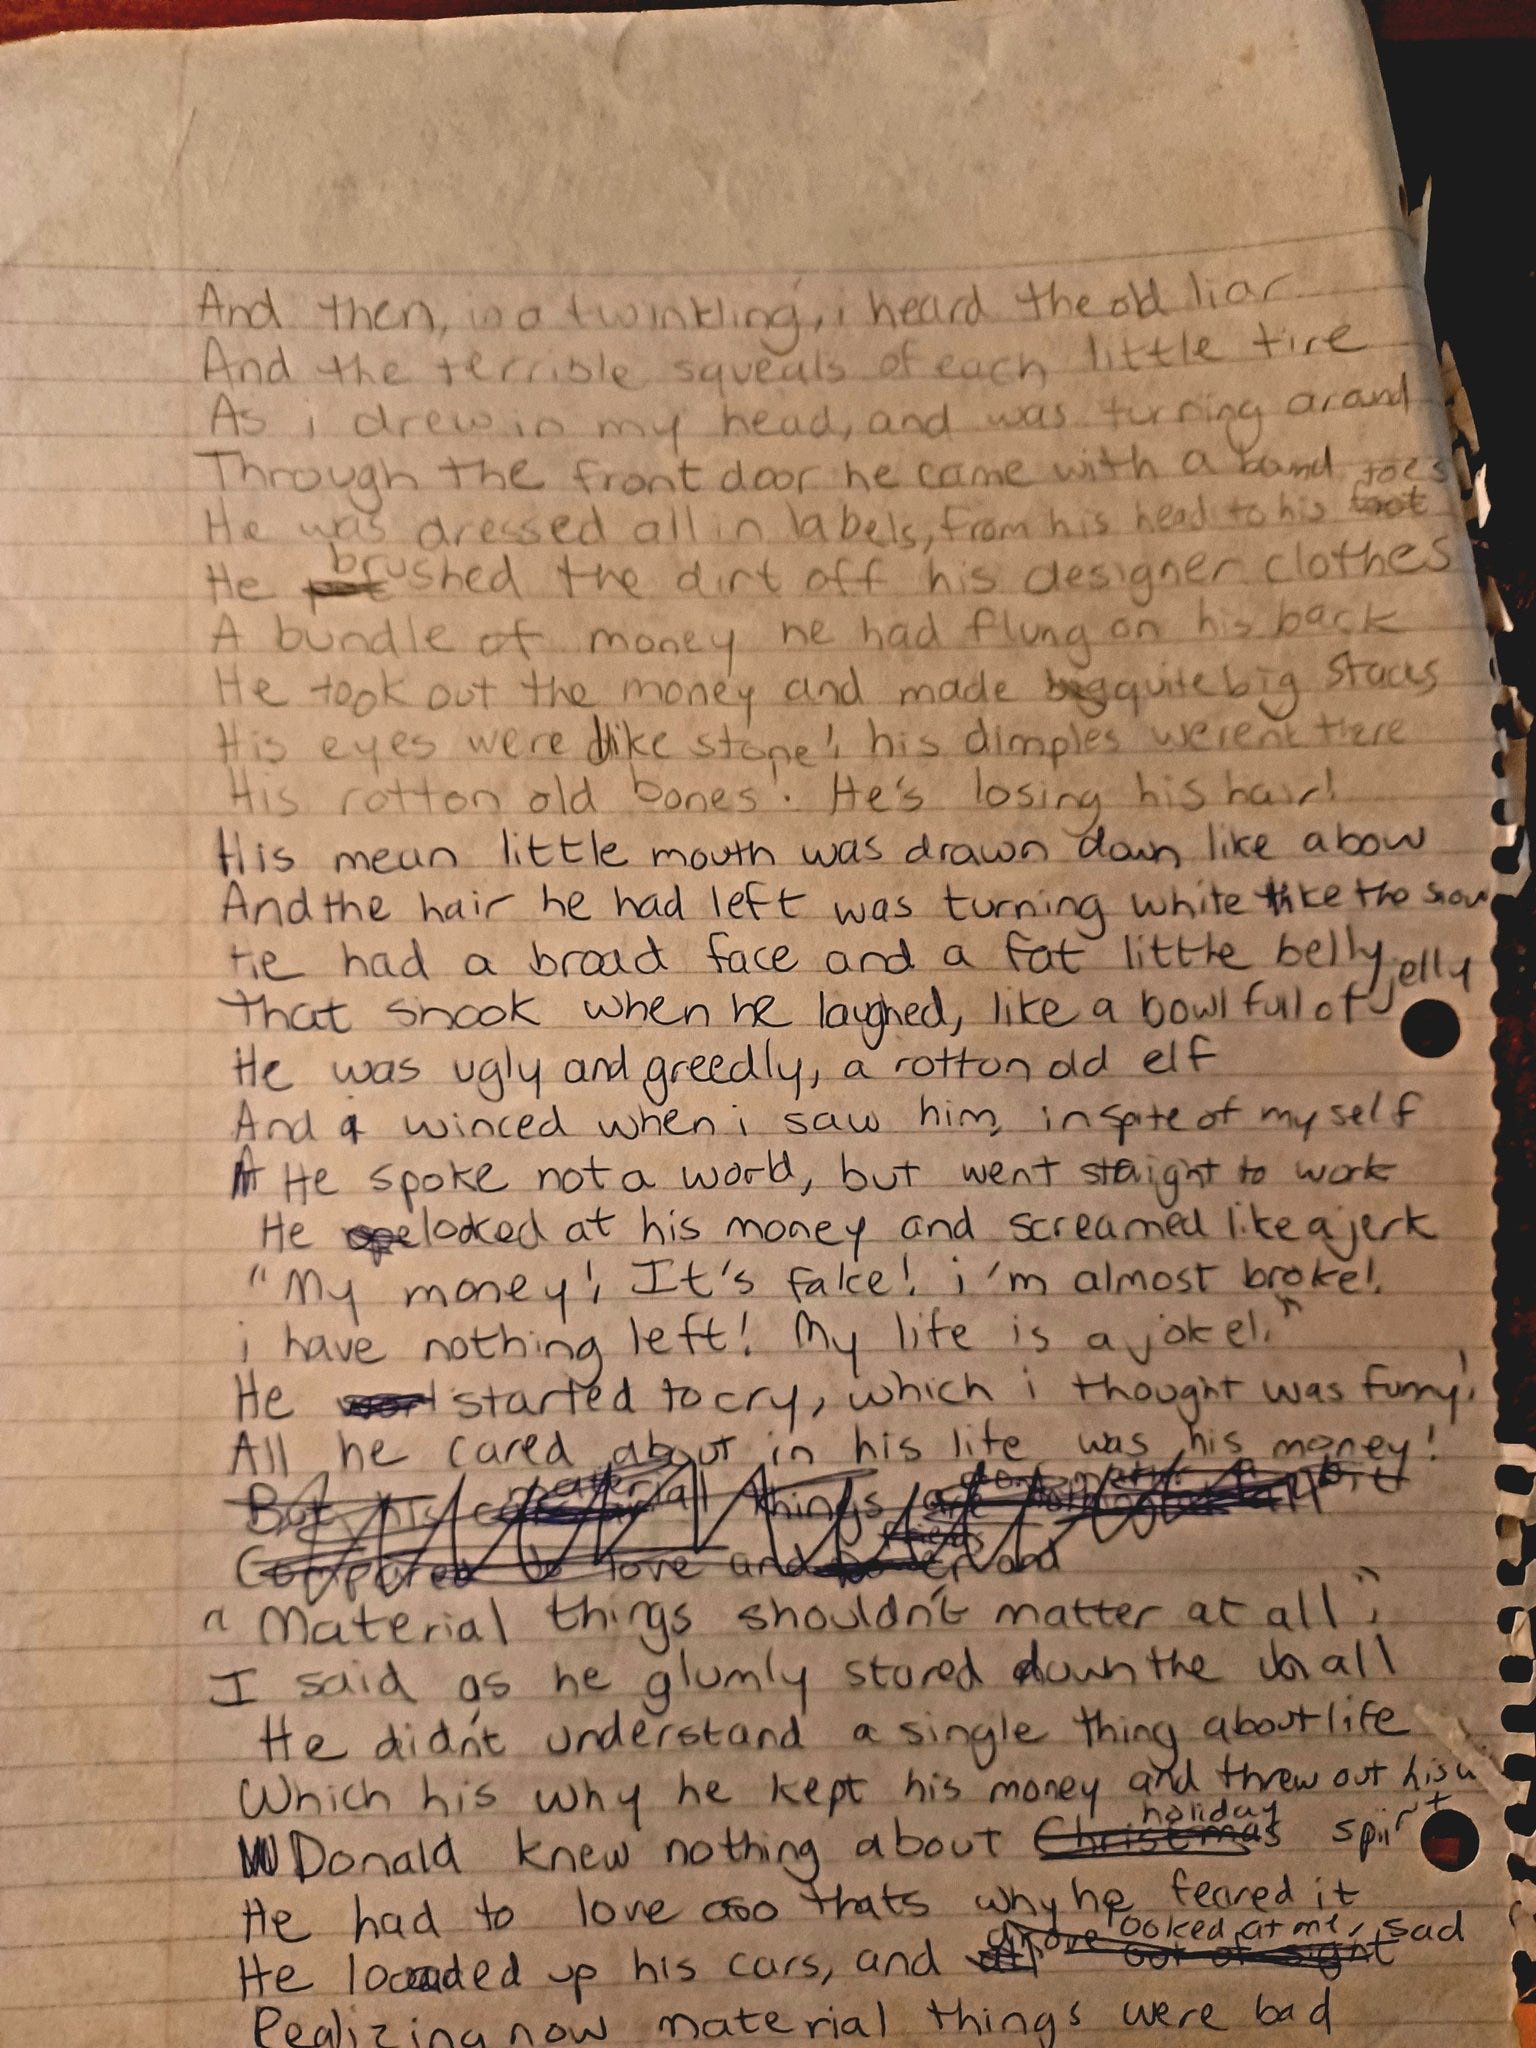 And then, in a twinkling, i heard the old liar
And the terrible squeals of each little tire
As i drew in my head, and was turning around
Through the front door he came with a
He was dressed all in labels, from his head to his toes
He brushed the dirt off his designer clothes
A bundle of money he had flung on his back
He took out the money and made quite big stacks
His eyes were like stone! his dimples werent there
His rotton old bones! He's losing his hair!
His mean little mouth was drawn down like a bow
And the hair he had left was turning white like the snow
He had a broad face and a fat little belly
That shook when he laughed, like a bowl full of jelly
He was ugly and greedly, a rotton old elf
And i winced when i saw him, in spite of my self
He spoke not a word, but went staight to work
He looked at his money and screamed like a jerk
"My money! It's fake! i'm almost broke!
i have nothing left! My life is a joke!"
He started to cry, which i thought was funny!
All he cared about in his life was his money!
But his material things
Compared to love and
"Material things shouldn't matter at all",
I said as he glumly stared down the hall
He didn't understand a single thing about life
Which his why he kept his money and threw out his
Donald knew nothing about holiday spirit
He had to love thats why he feared it
He loaded up his cars, and looked at me, sad
Realizing now material things were bad